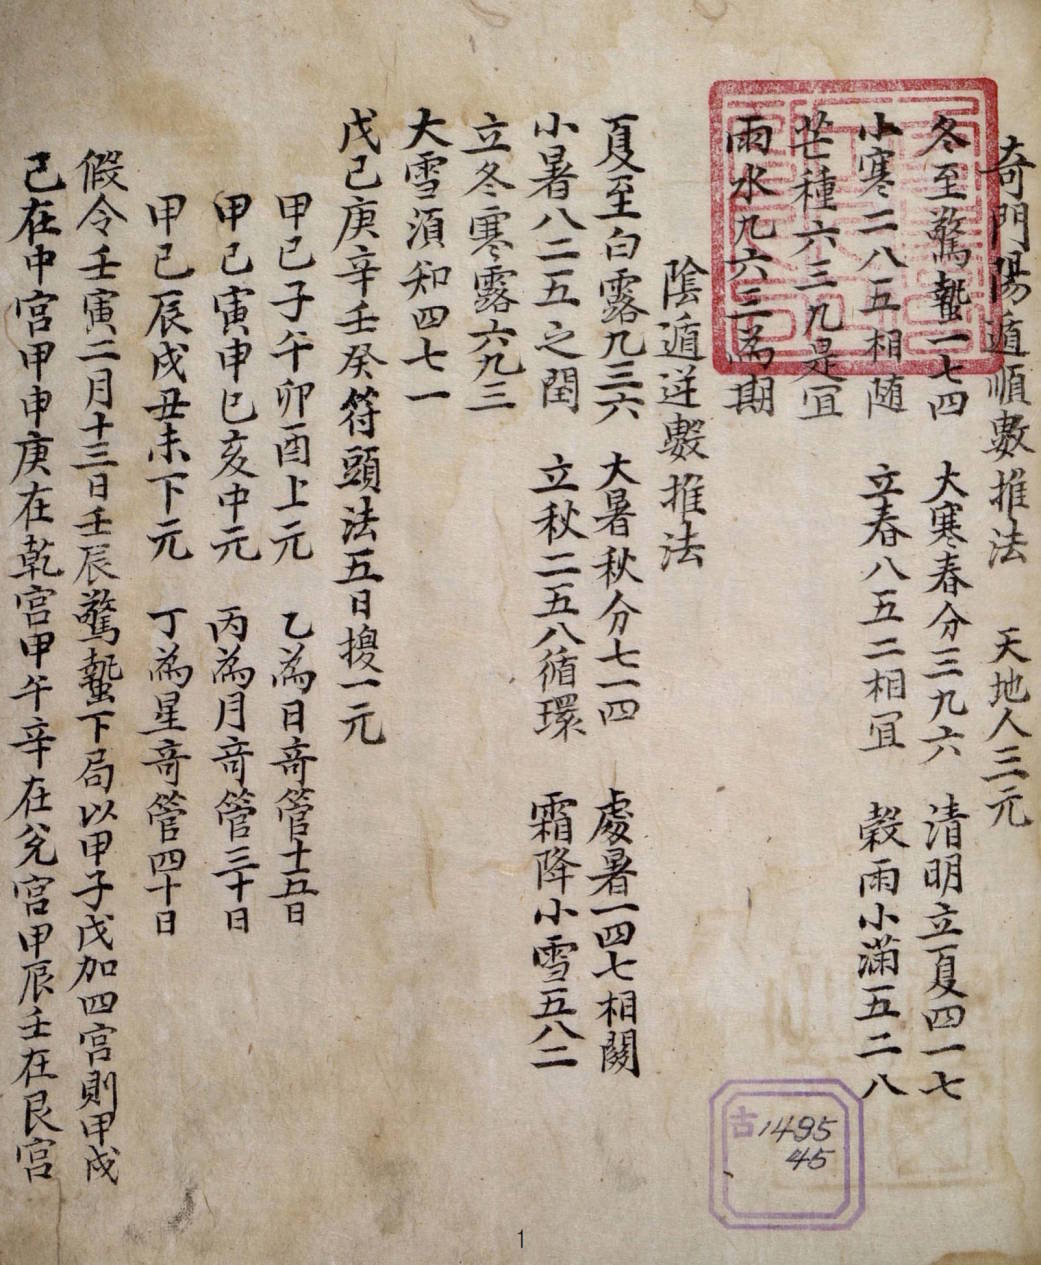 奇門陽遁順數推法 天地人三元
冬至驚蟄一七四 大寒春分三九六 清明立夏四一七
小寒二八五相随 立春八五二相冝 穀雨小滿五二八
芒種六三九是冝
雨水九六三為期
陰遁逆數推法
夏至白露九三六 大暑秋分七一四 處暑一四七相関
小暑八二五之間 立秋二五八循環 霜降小雪五八二
立冬寒露六九三
大雪湏知四七一
戊己庚辛壬癸符頭法五日換一元
甲己子午卯酉上元 乙為日奇管十五日
甲己寅申巳亥中元 丙為月奇管三十日
甲己辰戌丑未下元 丁為星奇管四十日
假令壬寅二月十三日壬辰驚蟄下局以甲子戊加四宮則甲戌
己在中宮甲申庚在乾宮甲午辛在兌宮甲辰壬在艮宮
古1495
45
1